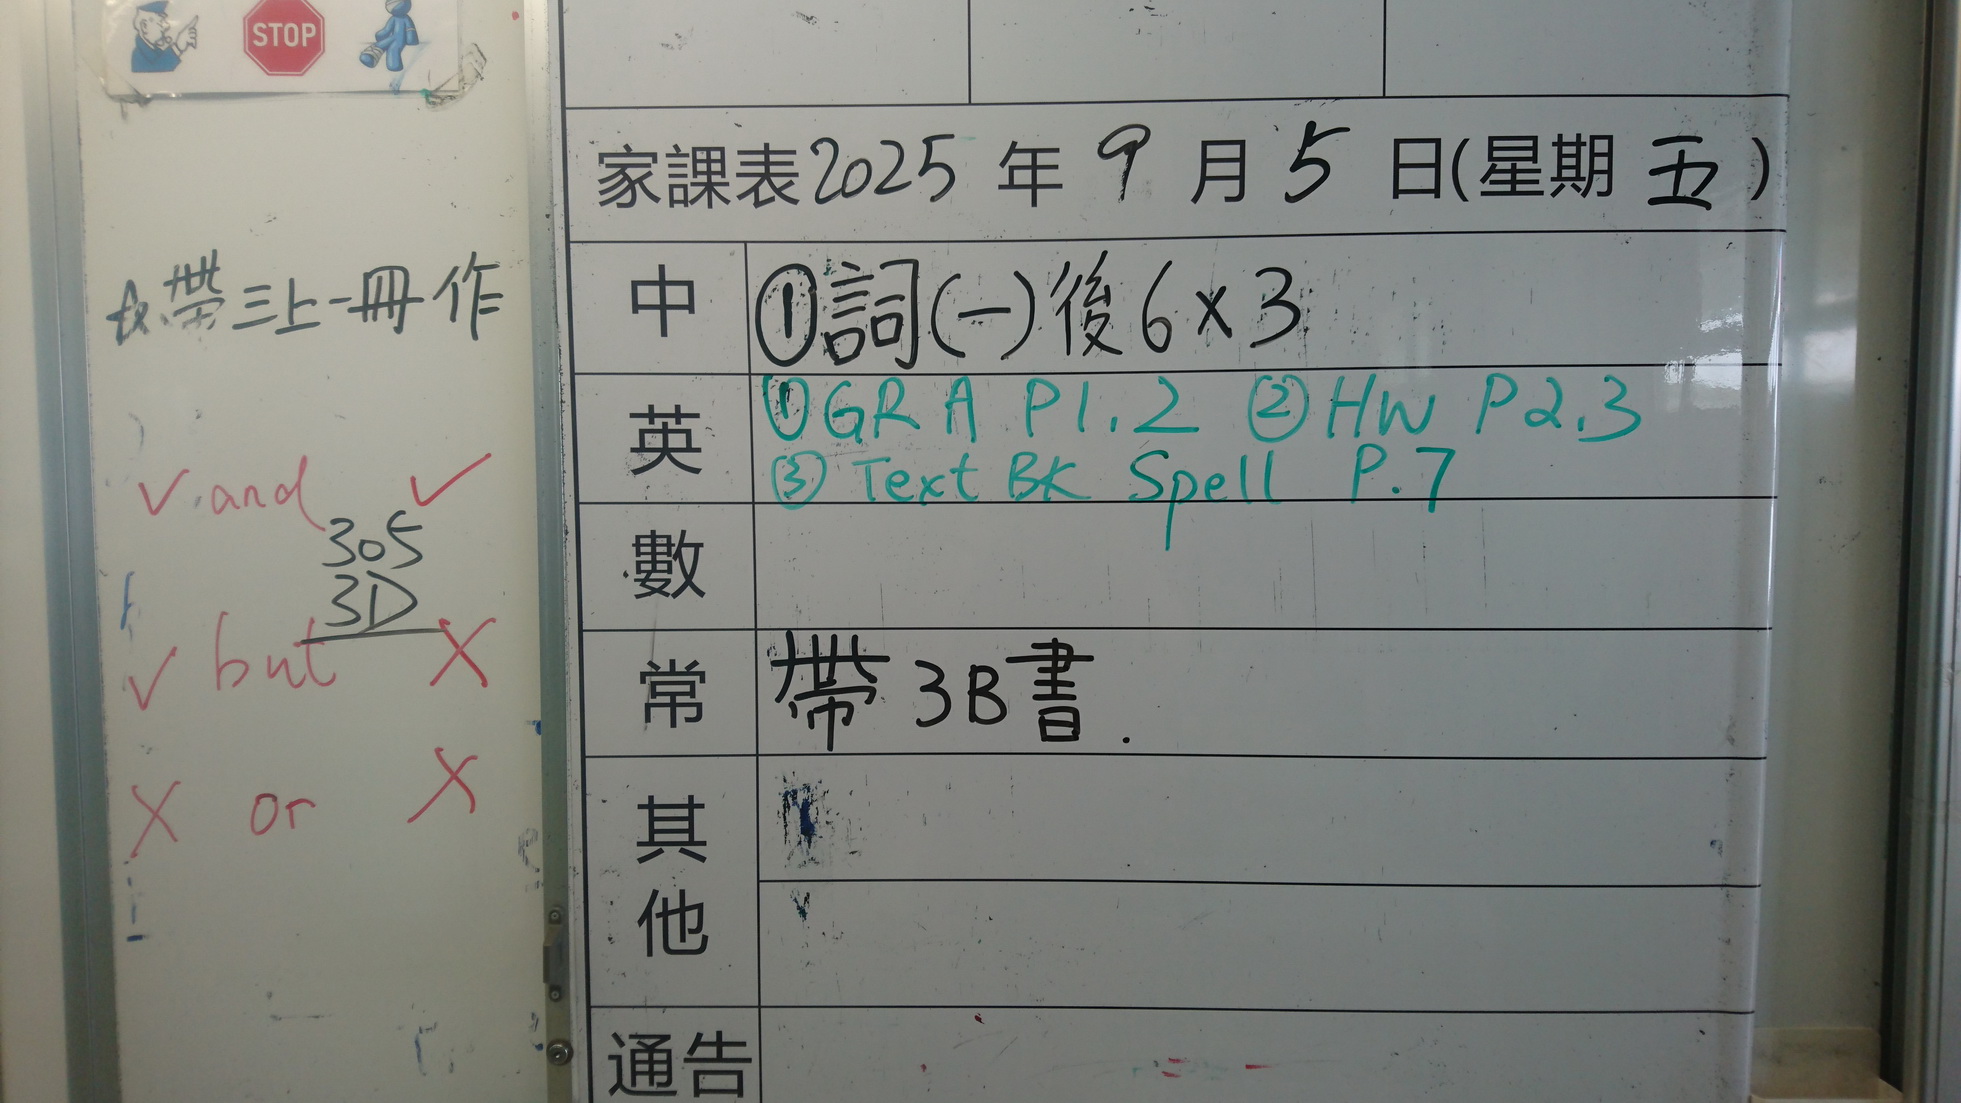 STOP
帶三上一冊作
✓ and ✓
305
3D
✓ but X
X or X
家課表2025年9月5日(星期五)
中 ①詞(一)後6x3
英 ①GR A P1.2 ②HW P2.3
③ Text BK Spell P.7
數
常 帶3B書.
其他
通告